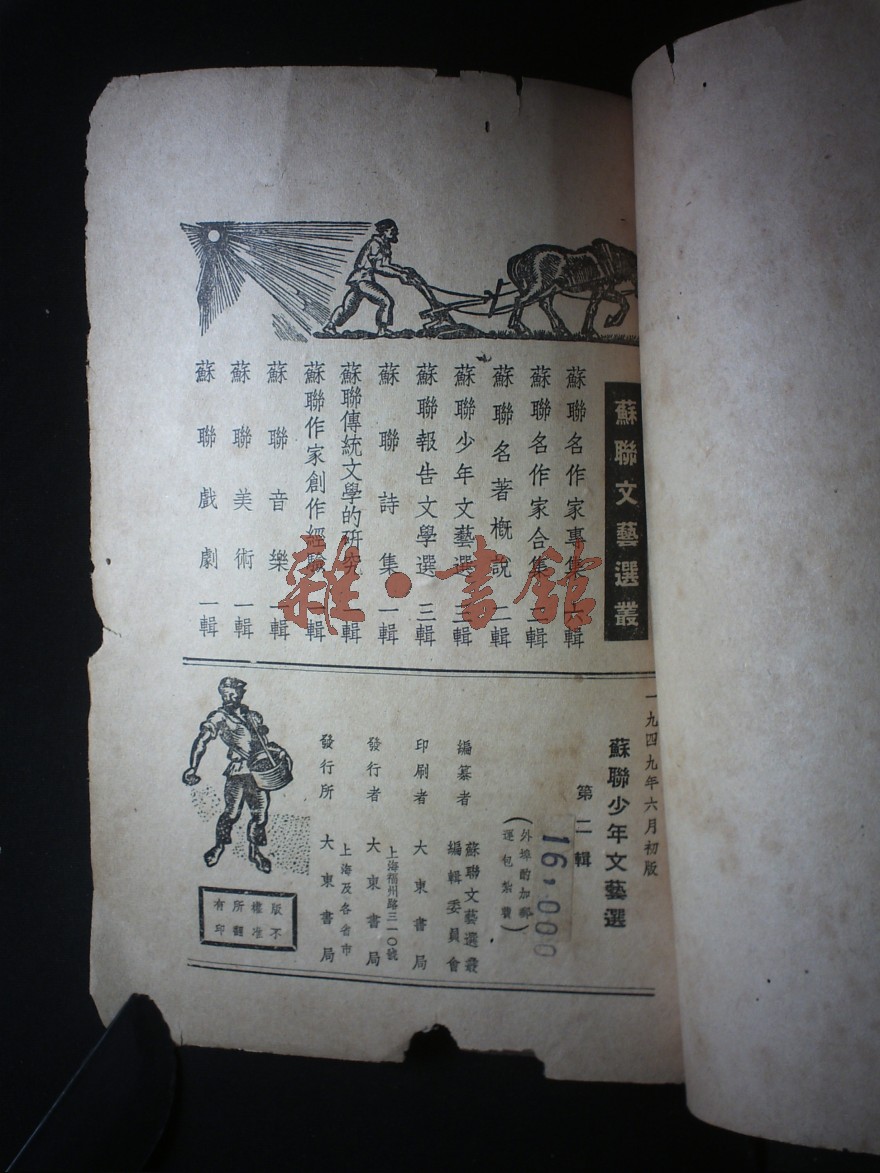 蘇聯文藝選叢
蘇聯名作家專集 六輯
蘇聯名作家合集 二輯
蘇聯名著概說 二輯
蘇聯少年文藝選 三輯
蘇聯報告文學選 三輯
蘇聯詩集 一輯
蘇聯傳統文學的研究 一輯
蘇聯作家創作經驗 一輯
蘇聯音樂 一輯
蘇聯美術 一輯
蘇聯戲劇 一輯
雜·書館
一九四九年六月初版
蘇聯少年文藝選
第二輯
16,000
(外埠酌加郵
運包紮費)
編纂者 蘇聯文藝選叢
編輯委員會
印刷者 大東書局
上海福州路三一〇號
發行者 大東書局
上海及各省市
發行所 大東書局
版權所有
不准翻印